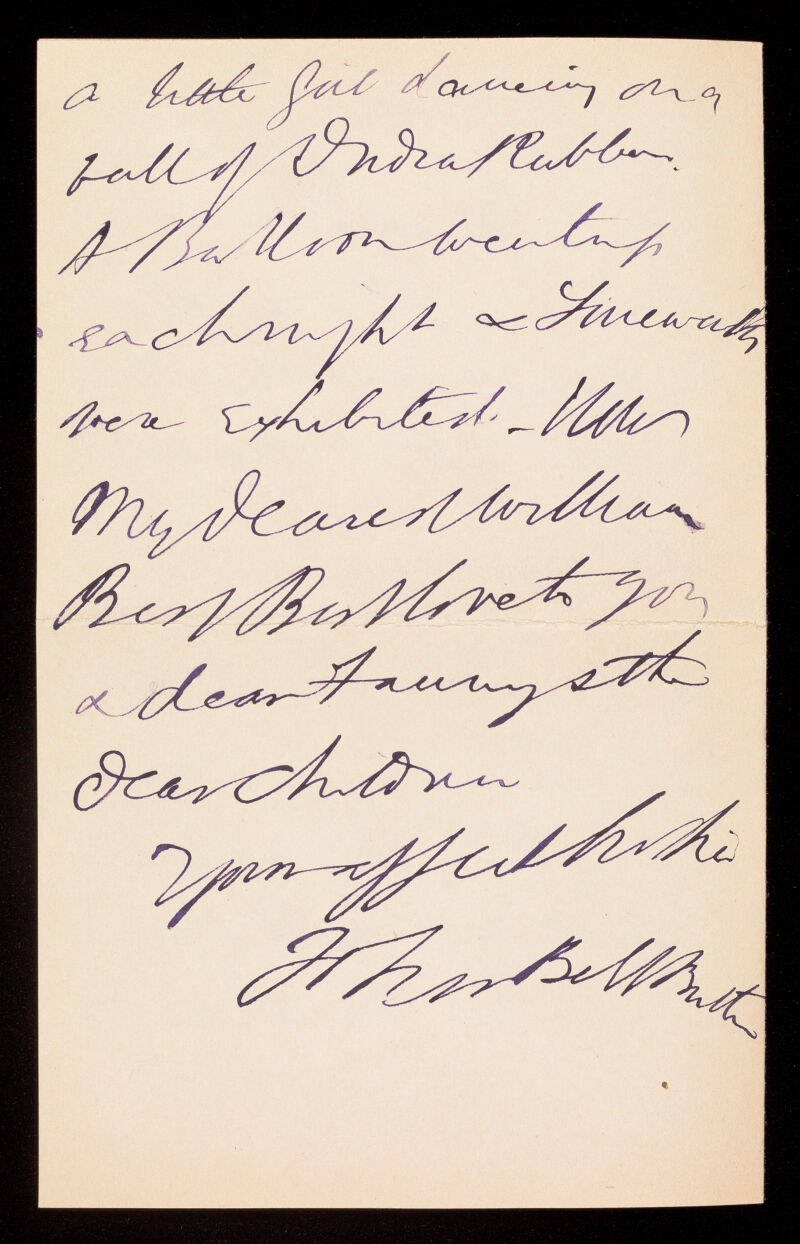 a little girl dancing on a
ball of India Rubber.
A Balloon went up
each night & Fireworks
were exhibited - With
My Dearest William
Best Best love to you
& dear Fanny & the
Dear Children
Your affect brother
John Bell